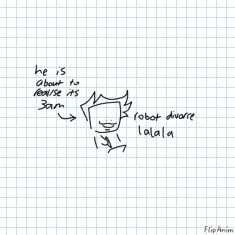 he is
about to
realise its
3am
robot divorce
lalala
FlipAnim